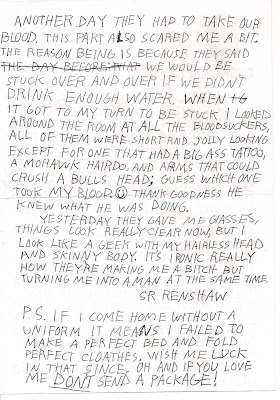 ANOTHER DAY THEY HAD TO TAKE OUR
BLOOD. THIS PART ALSO SCARED ME A BIT.
THE REASON BEING IS BECAUSE THEY SAID
THE DAY BEFORE THAT WE WOULD BE
STUCK OVER AND OVER IF WE DIDN'T
DRINK ENOUGH WATER. WHEN
IT GOT TO MY TURN TO BE STUCK I LOOKED
AROUND THE ROOM AT ALL THE BLOODSUCKERS,
ALL OF THEM WERE SHORT AND JOLLY LOOKING
EXCEPT FOR ONE THAT HAD A BIG ASS TATTOO,
A MOHAWK HAIRDO, AND ARMS THAT COULD
CRUSH A BULLS HEAD; GUESS WHICH ONE
TOOK MY BLOOD. ☺ THANK GOODNESS HE
KNEW WHAT HE WAS DOING.
YESTERDAY THEY GAVE ME GLASSES,
THINGS LOOK REALLY CLEAR NOW, BUT I
LOOK LIKE A GEEK WITH MY HAIRLESS HEAD
AND SKINNY BODY. IT'S IRONIC REALLY
HOW THEY'RE MAKING ME A BITCH BUT
TURNING ME INTO A MAN AT THE SAME TIME.
SR RENSHAW
P.S. IF I COME HOME WITHOUT A
UNIFORM IT MEANS I FAILED TO
MAKE A PERFECT BED AND FOLD
PERFECT CLOATHES, WISH ME LUCK
IN THAT SINCE, OH AND IF YOU LOVE
ME DON'T SEND A PACKAGE!